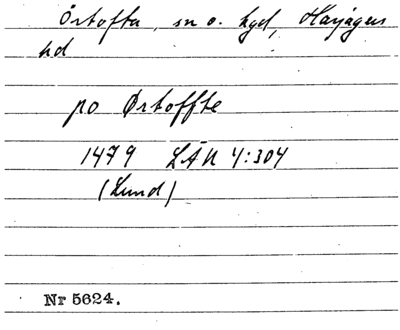 Örtofta, sn o. hgd, Harjagers
hd
po Ørtoffte
1479 LÄU 4:304
(Lund)
Nr 5624.